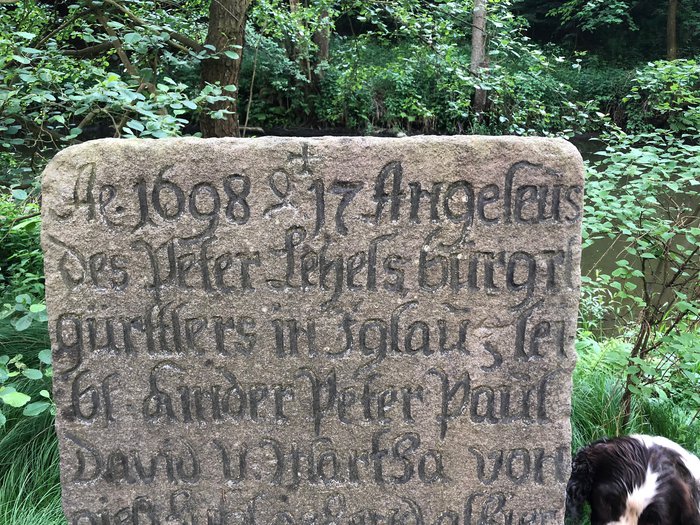 Ao. 1698 d 17 Angeleüs
des Peter Letzels bürgrl
gürtlers in Iglaü, lei-
bl. Kinder Peter Paül
David v. Martha von